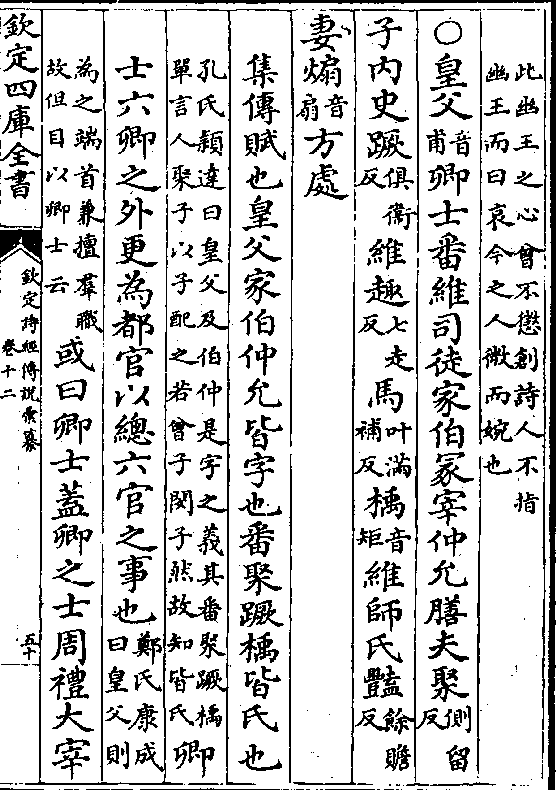 此幽王之心曾不懲創詩人不指
幽王而曰哀今之人微而婉也
○皇父音甫卿士番維司徒家伯冢宰仲允膳夫聚側留反
子內史蹶俱衞反維趣七走反馬叶滿補反楀音矩維師氏豔餘贍反
妻煽音扇方處
集傳賦也皇父家伯仲允皆字也番聚蹶楀皆氏也
孔氏穎達曰皇父及伯仲是字之義其番聚蹶楀
單言人聚子以子配之若曾子閔子然故知皆氏卿
士六卿之外更為都官以總六官之事也鄭氏康成曰皇父則
為之端首兼擅羣職
故但目以卿士云或曰卿士蓋卿之士周禮大宰
欽定四庫全書
欽定詩經傳說彙纂
卷十二
五十